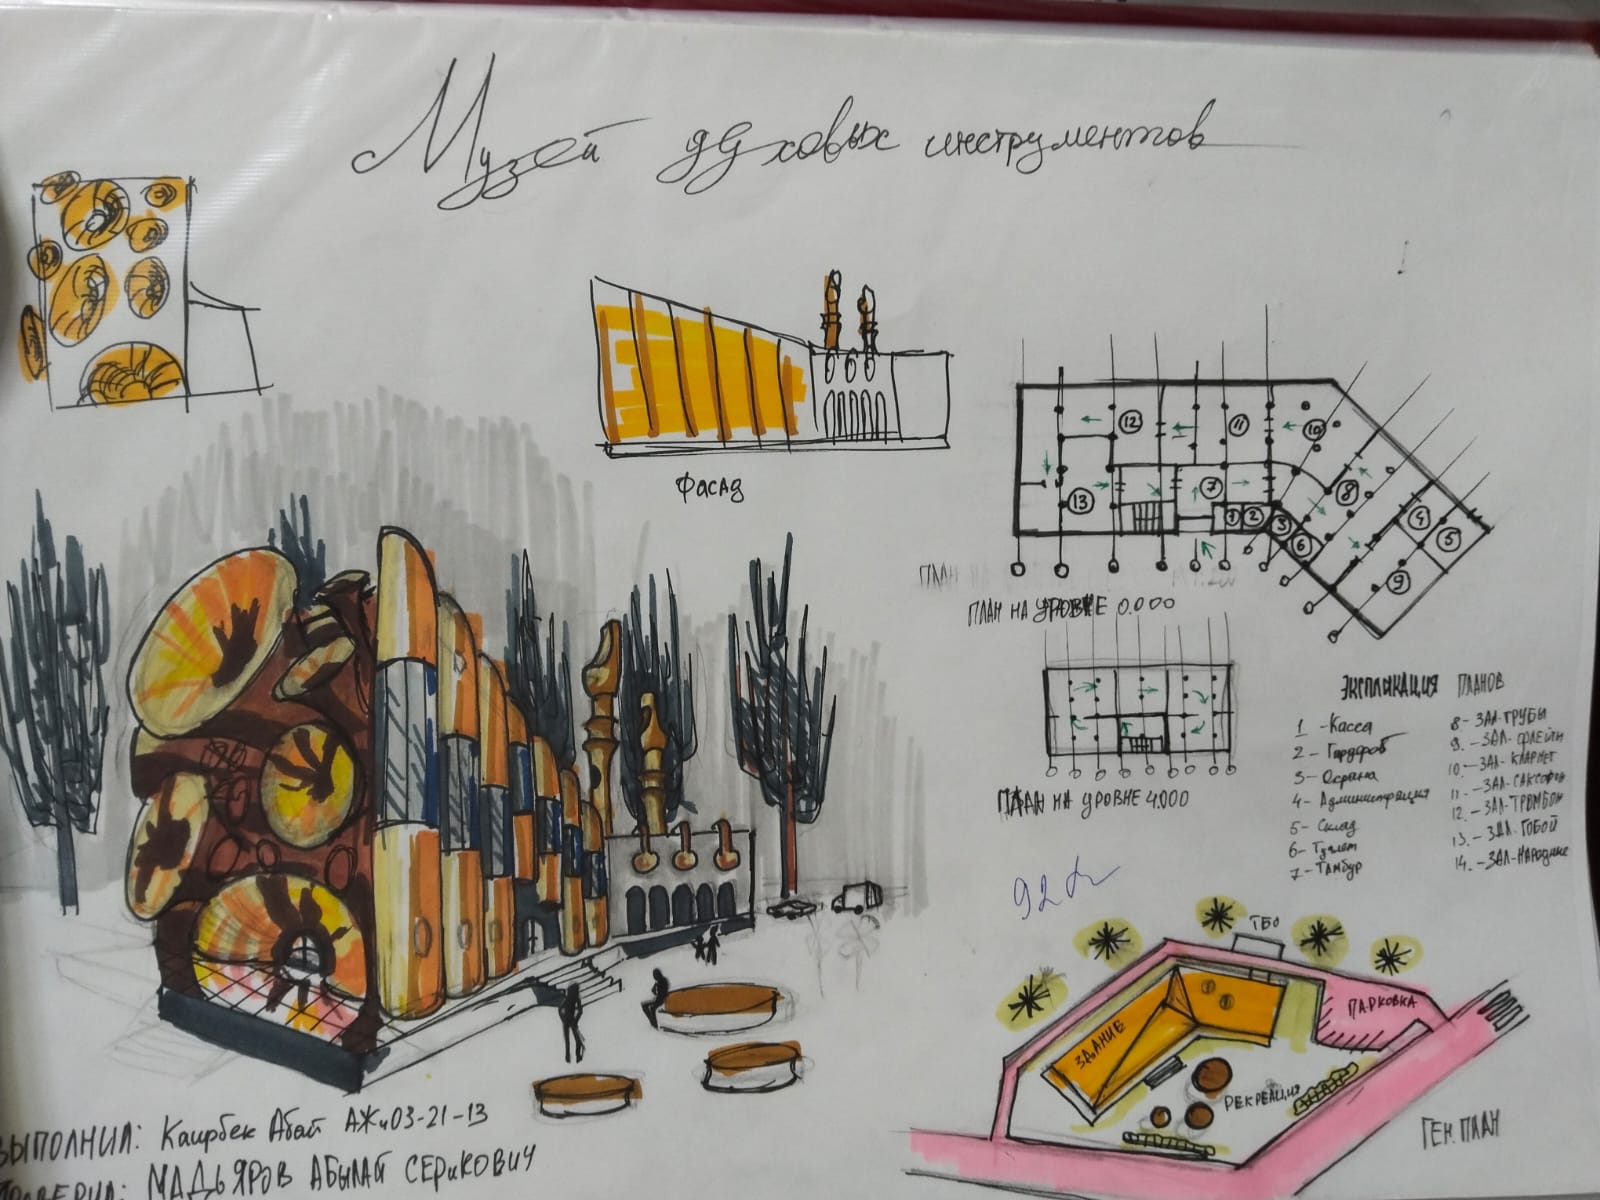 Музей духовых инструментов
фасад
12
11
10
7
8
13
1
2
3
6
4
5
9
ПЛАН НА УРОВНЕ 0.000
ПЛАН НА УРОВНЕ 4.000
ЭКСПЛИКАЦИЯ ПЛАНОВ
1 - Касса
2 - Гардероб
3 - Охрана
4 - Администрация
5 - Склад
6 - Туалет
7 - Тамбур
8 - ЗАЛ-ТРУБЫ
9. - ЗАЛ-ФЛЕЙТЫ
10. - ЗАЛ-КЛАРНЕТ
11. - ЗАЛ-САКСОФОН
12. - ЗАЛ-ТРОМБОН
13. - ЗАЛ-ГОБОЙ
14. - ЗАЛ-НАРОДНЫЕ
92
ТБО
ПАРКОВКА
ЗДАНИЕ
РЕКРЕАЦИЯ
ГЕН.ПЛАН
ВЫПОЛНИЛ: Каирбек Абай АЖч03-21-13
ПРОВЕРИЛ: МАДЬЯРОВ АБЫЛАЙ СЕРИКОВИЧ